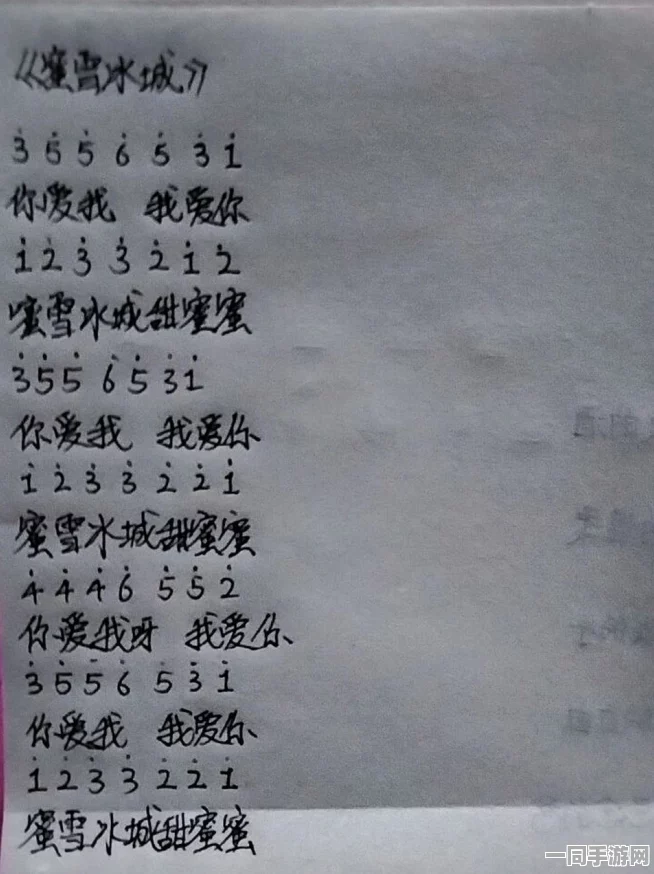 《蜜雪冰城》
3̇ 5̇ 5̇ 6̇ 5̇ 3̇ 1̇
你爱我 我爱你
1̇ 2̇ 3̇ 3̇ 2̇ 1̇ 2̇
蜜雪冰城甜蜜蜜
3̇ 5̇ 5̇ 6̇ 5̇ 3̇ 1̇
你爱我 我爱你
1̇ 2̇ 3̇ 3̇ 2̇ 2̇ 1̇
蜜雪冰城甜蜜蜜
4̇ 4̇ 4̇ 6̇ 5̇ 5̇ 2̇
你爱我呀 我爱你
3̇ 5̇ 5̇ 6̇ 5̇ 3̇ 1̇
你爱我 我爱你
1̇ 2̇ 3̇ 3̇ 2̇ 2̇ 1̇
蜜雪冰城甜蜜蜜
一同手游网